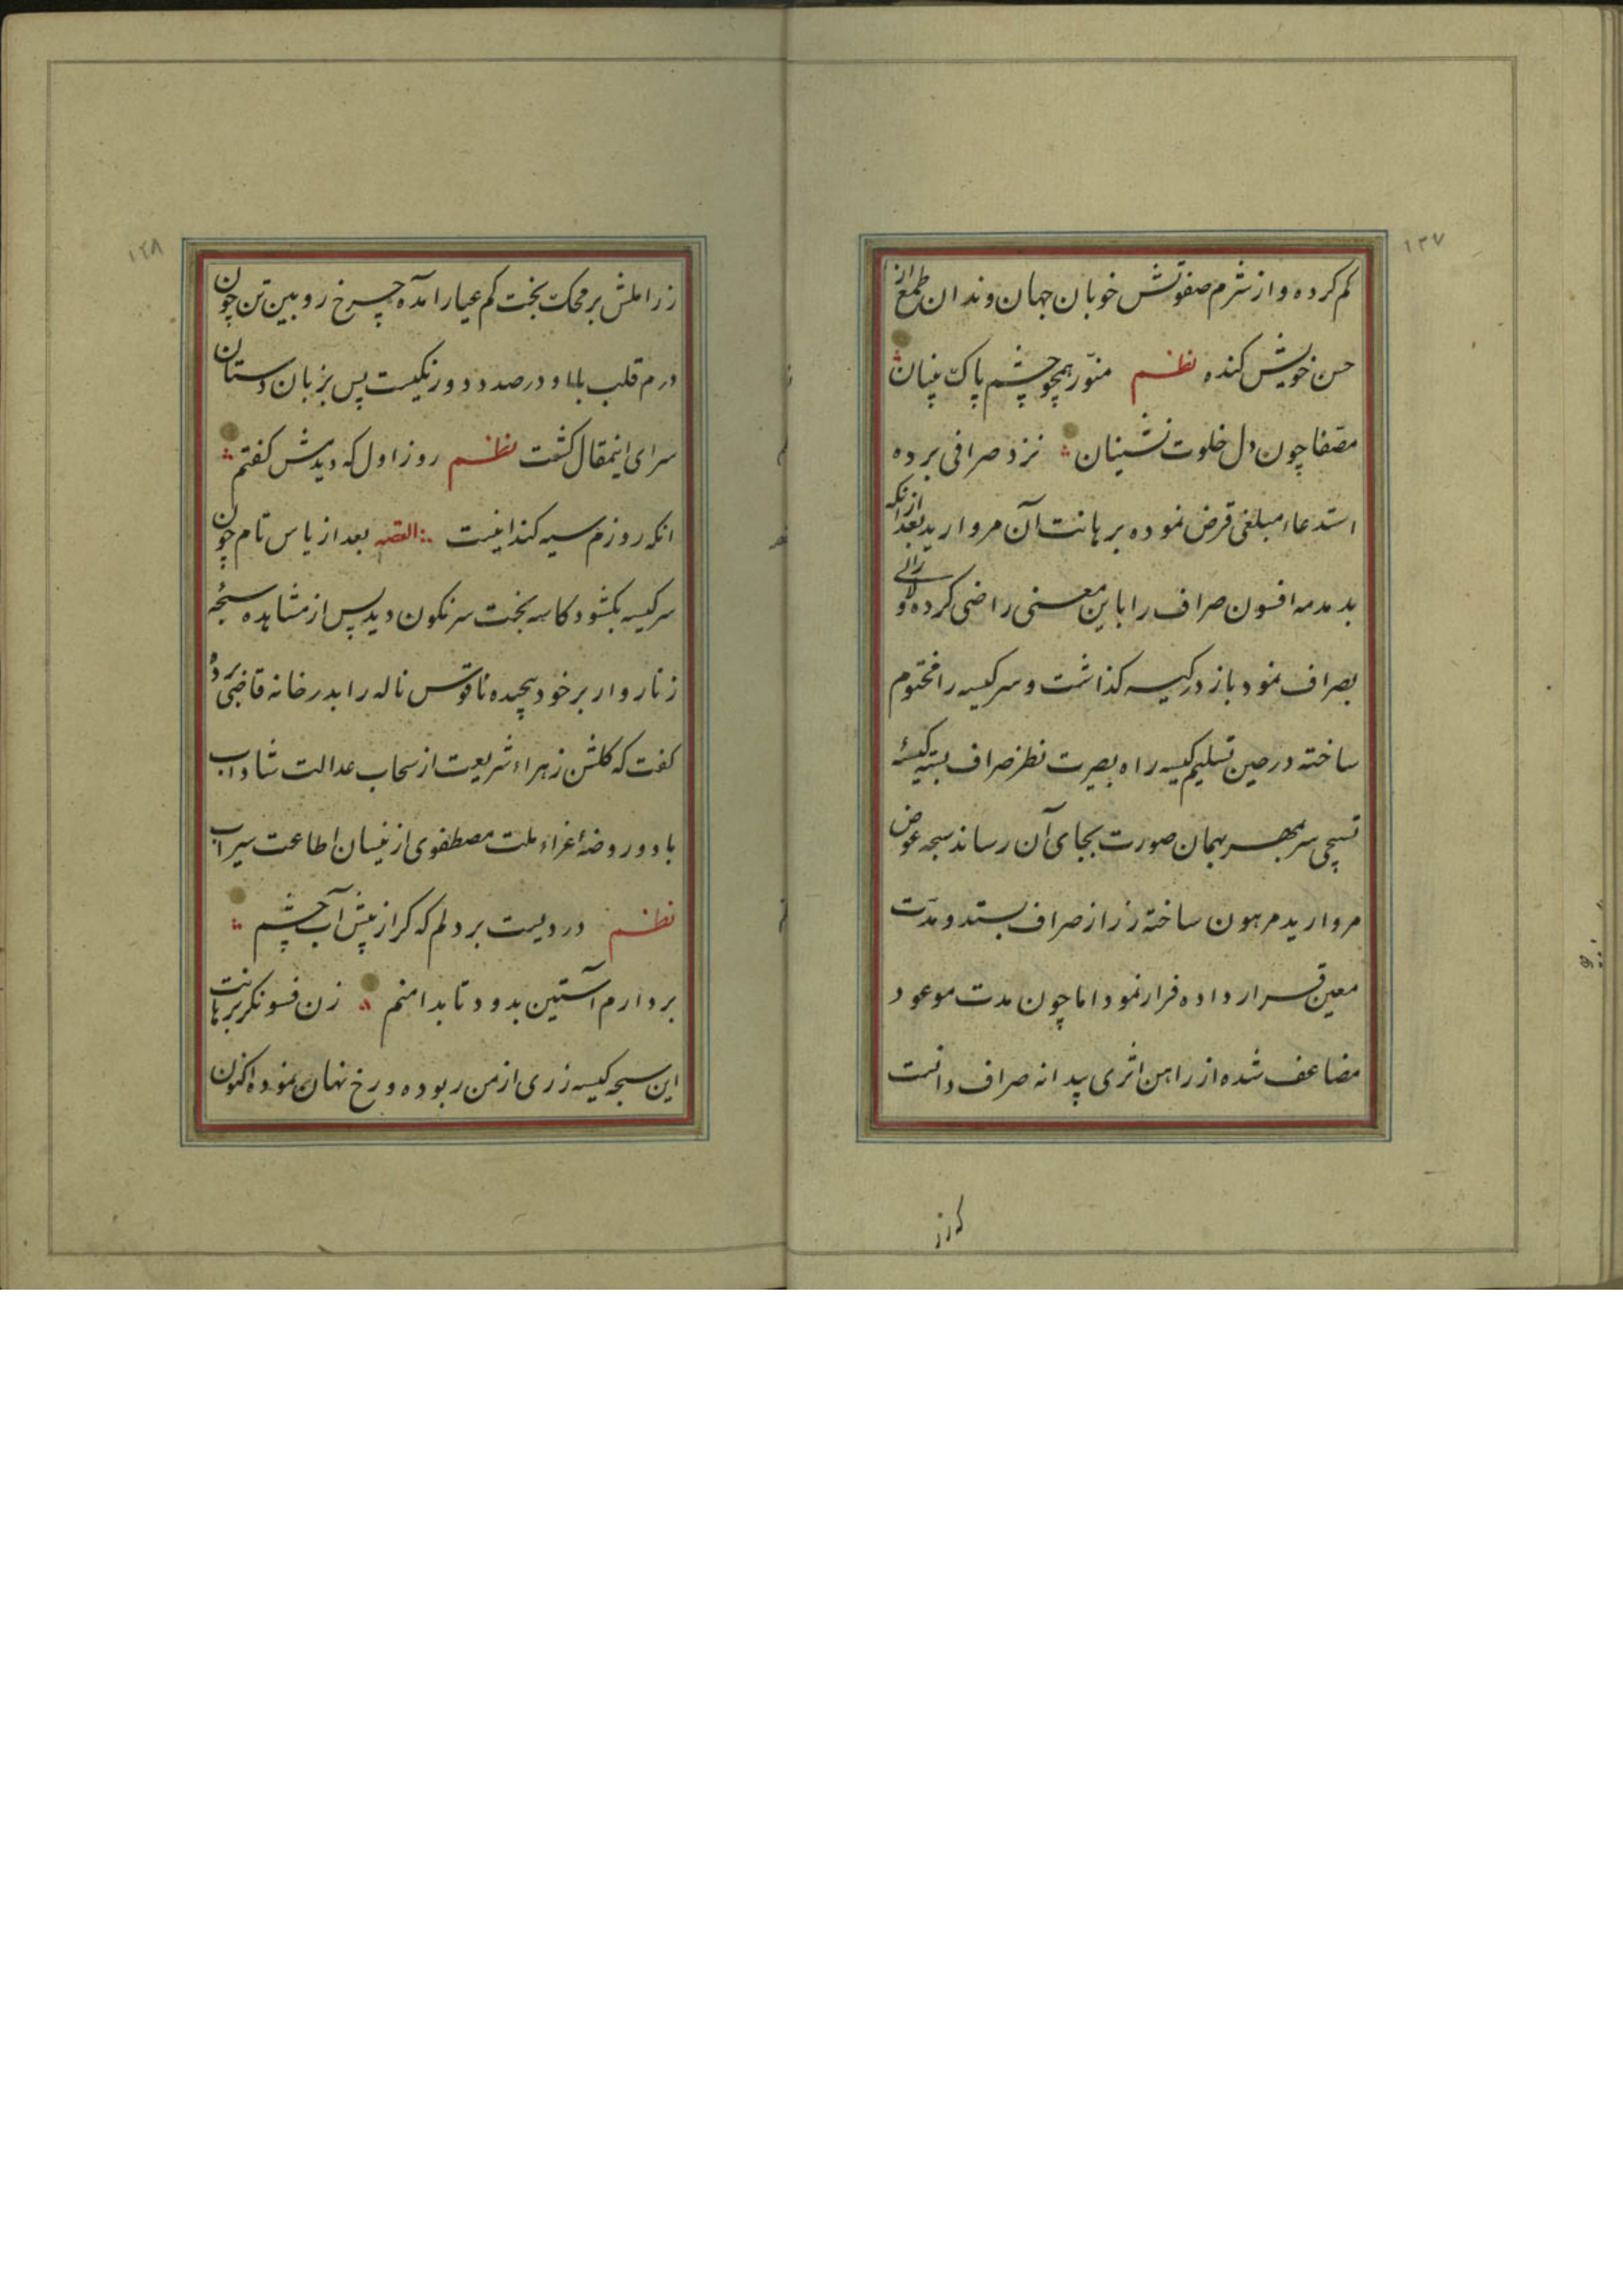 ۱۳۷
کم کرده و از شرم صفوتش خوبان جهان دندان طمع از
حسن خویش کنده نظم منور همچو چشم پاک بینان
مصفا چون دل خلوت نشینان نزد صرافی برده
استدعاء مبلغی قرض نموده برهانت آن مروارید بعد ازانکه
بدمدمه افسون صراف را باین معنی راضی کرده و لالی
بصراف نمود باز در کیسه کذاشت و سر کیسه را مختوم
ساخته در حین تسلیم کیسه راه بصیرت نظر صراف بسته کیسهٔ
تسبیحی سر بمهر بهمان صورت بجای آن رساند سبحه عوض
مروارید مرهون ساخته زر از صراف بستد و مدت
معین قرار داده فرار نمود اما چون مدت موعود
مضاعف شده از راهن اثری پیدا نه صراف دانست
که زر
۱۲۸
زر املش بر محک بخت کم عیار آمده چرخ رویین تن چون
درم قلب با او در صدد دورنکیست پس بزبان دستان
سرای اینمقال کشت نظم روز اول که دیدمش کفتم
انکه روزم سیه کند اینست القصه بعد از یاس تام چون
سر کیسه بکشود کاسه بخت سرنکون دید پس از مشاهده سبحه
زنار وار بر خود پیچیده ناقوس ناله را بدرخانه قاضی برد و
کفت که کلشن زهراء شریعت از سحاب عدالت شاداب
باد و روضهٔ غراء ملت مصطفوی از نیسان اطاعت سیراب
نظم دردیست بر دلم که کر از پیش آب چشم
بردارم آستین بدود تا بدامنم زن فسونکر برهانت
این سبحه کیسه زری از من ربوده و رخ نهان نموده اکنون